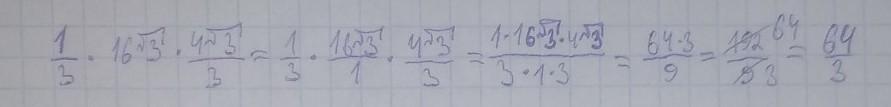 1/3 · 16√3 · 4√3/3 = 1/3 · 16√3/1 · 4√3/3 = 1·16√3·4√3/3·1·3 = 64·3/9 = 192 64/9 3 = 64/3